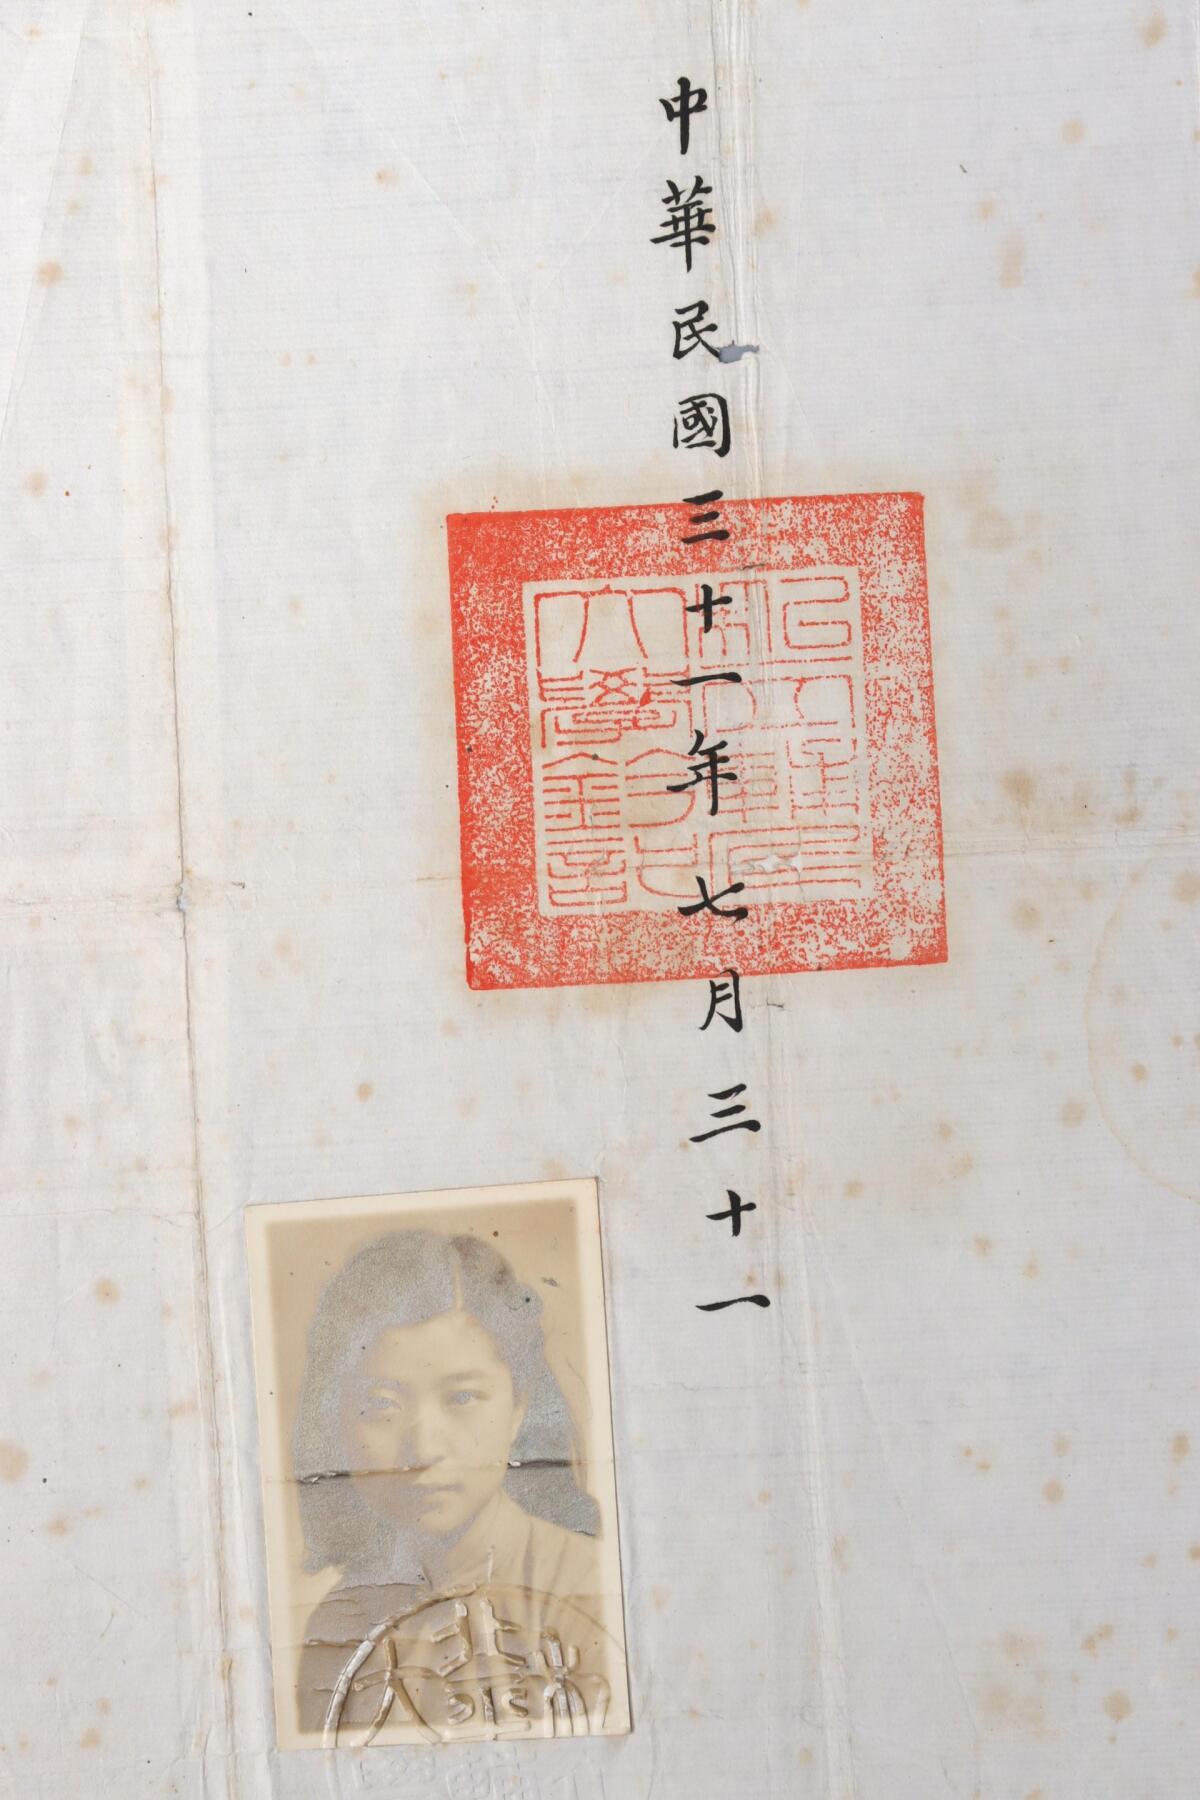 中華民國三十一年七月三十一
大學鈐記